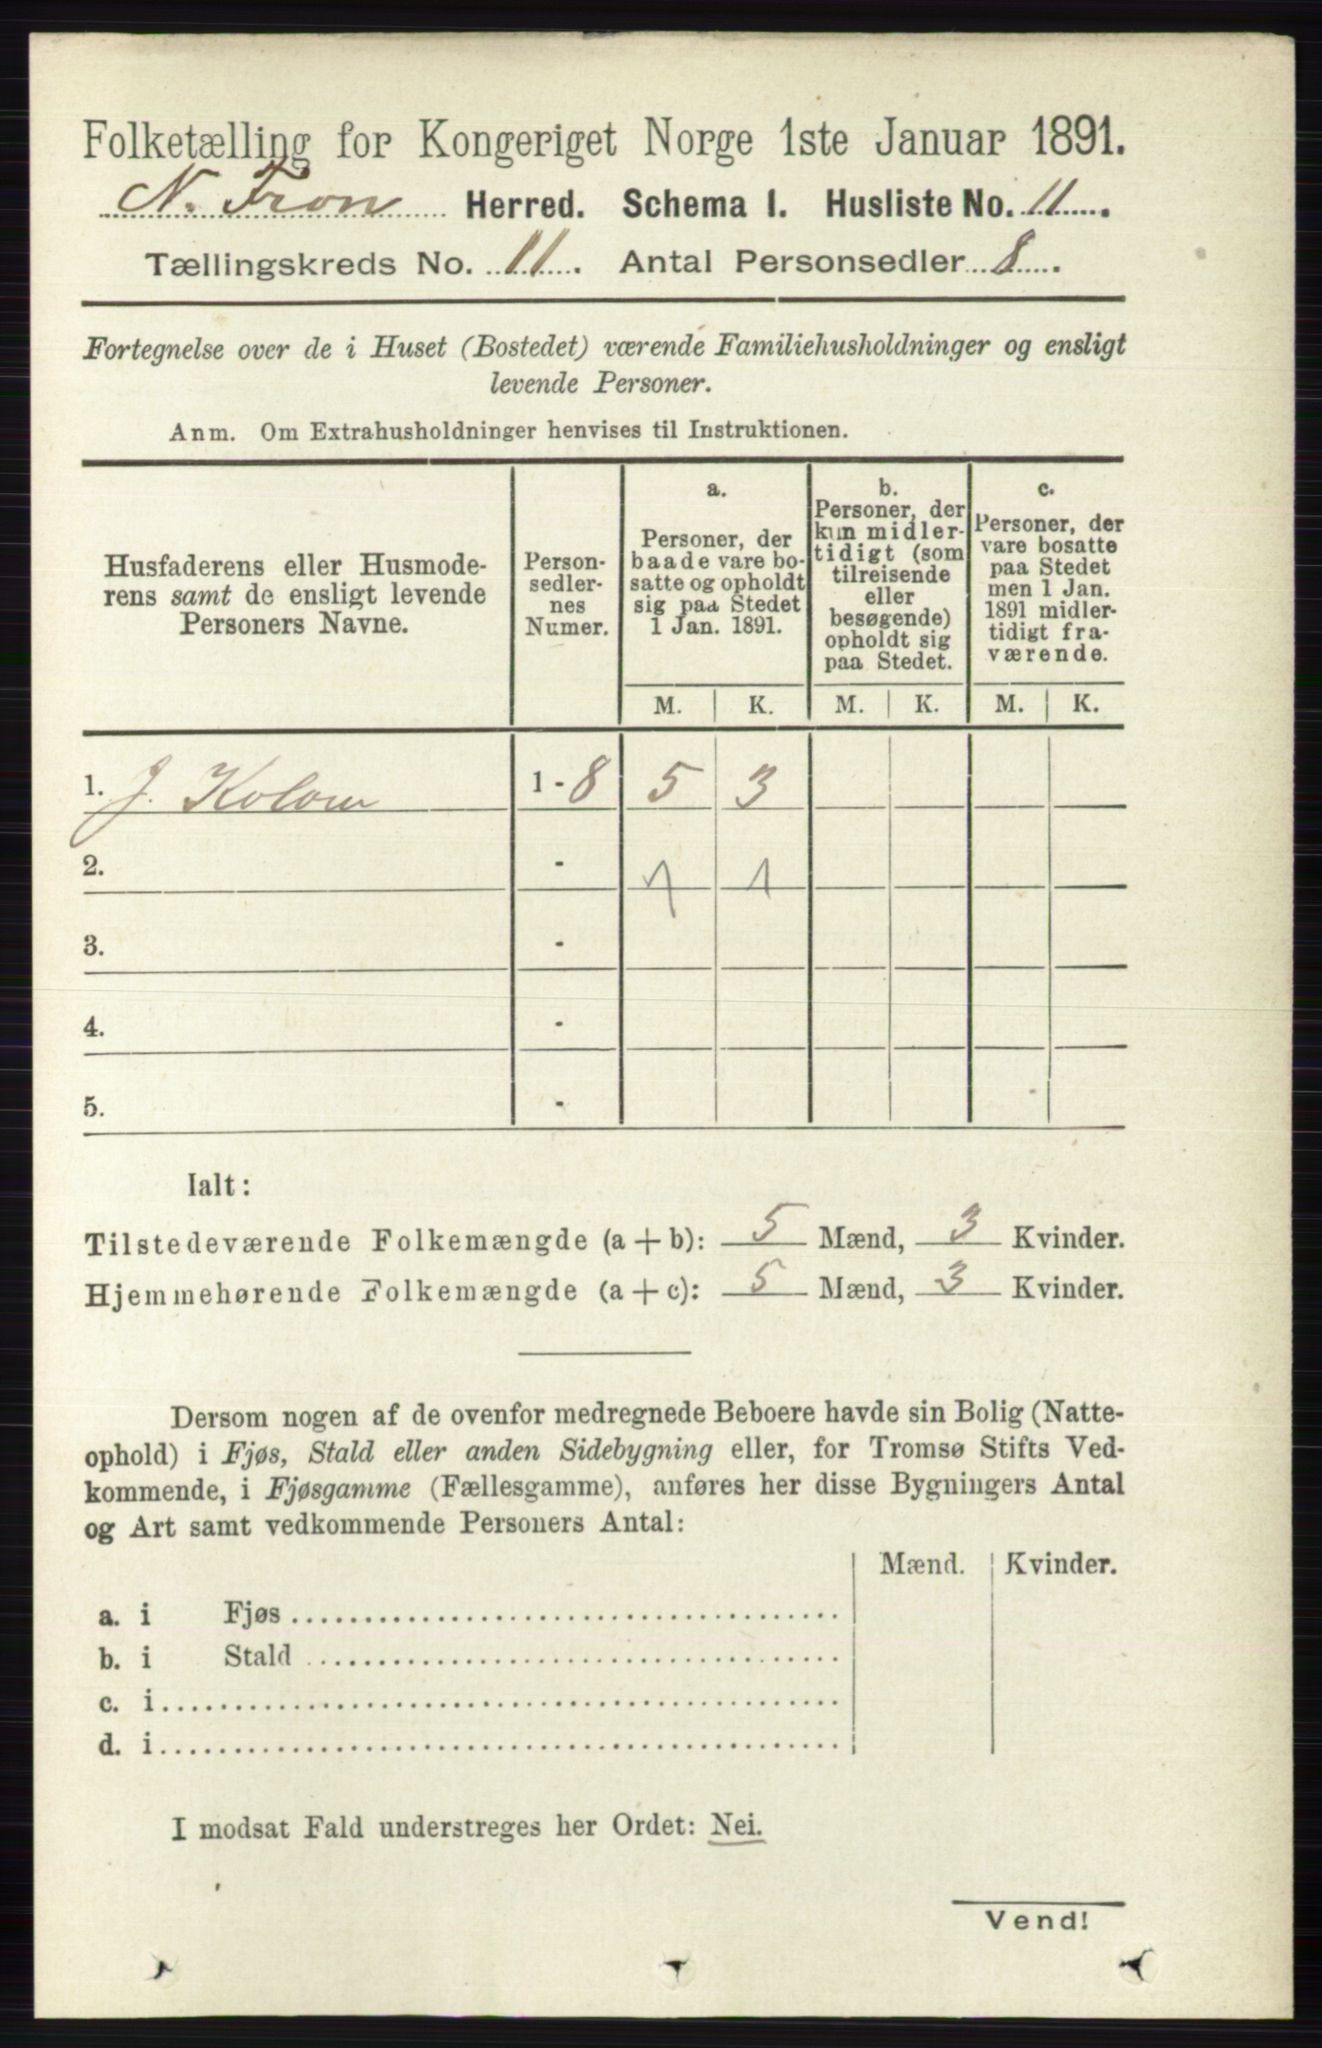 Folketælling for Kongeriget Norge 1ste Januar 1891.
N. Fron Herred. Schema I. Husliste No. 11.
Tællingskreds No. 11. Antal Personsedler 8.
Fortegnelse over de i Huset (Bostedet) værende Familiehusholdninger og ensligt
levende Personer.
Anm. Om Extrahusholdninger henvises til Instruktionen.
Husfaderens eller Husmode-
rens samt de ensligt levende
Personers Navne.
Person-
sedler-
nes
Numer.
a.
Personer, der
baade vare bo-
satte og opholdt
sig paa Stedet
1 Jan. 1891.
b.
Personer, der
kun midler-
tidigt (som
tilreisende
eller
besøgende)
opholdt sig
paa Stedet.
c.
Personer, der
vare bosatte
paa Stedet
men 1 Jan.
1891 midler-
tidigt fra-
værende.
M. K. M. K. M. K.
1. J. 1 - 8 5 3
2. - 1 1
3. -
4. -
5. -
Ialt:
Tilstedeværende Folkemængde (a + b): 5 Mænd, 3 Kvinder.
Hjemmehørende Folkemængde (a + c): 5 Mænd, 3 Kvinder.
Dersom nogen af de ovenfor medregnede Beboere havde sin Bolig (Natte-
ophold) i Fjøs, Stald eller anden Sidebygning eller, for Tromsø Stifts Ved-
kommende, i Fjøsgamme (Fællesgamme), anføres her disse Bygningers Antal
og Art samt vedkommende Personers Antal:
Mænd. Kvinder.
a. i Fjøs
b. i Stald
c. i
d. i
I modsat Fald understreges her Ordet: Nei.
Vend!